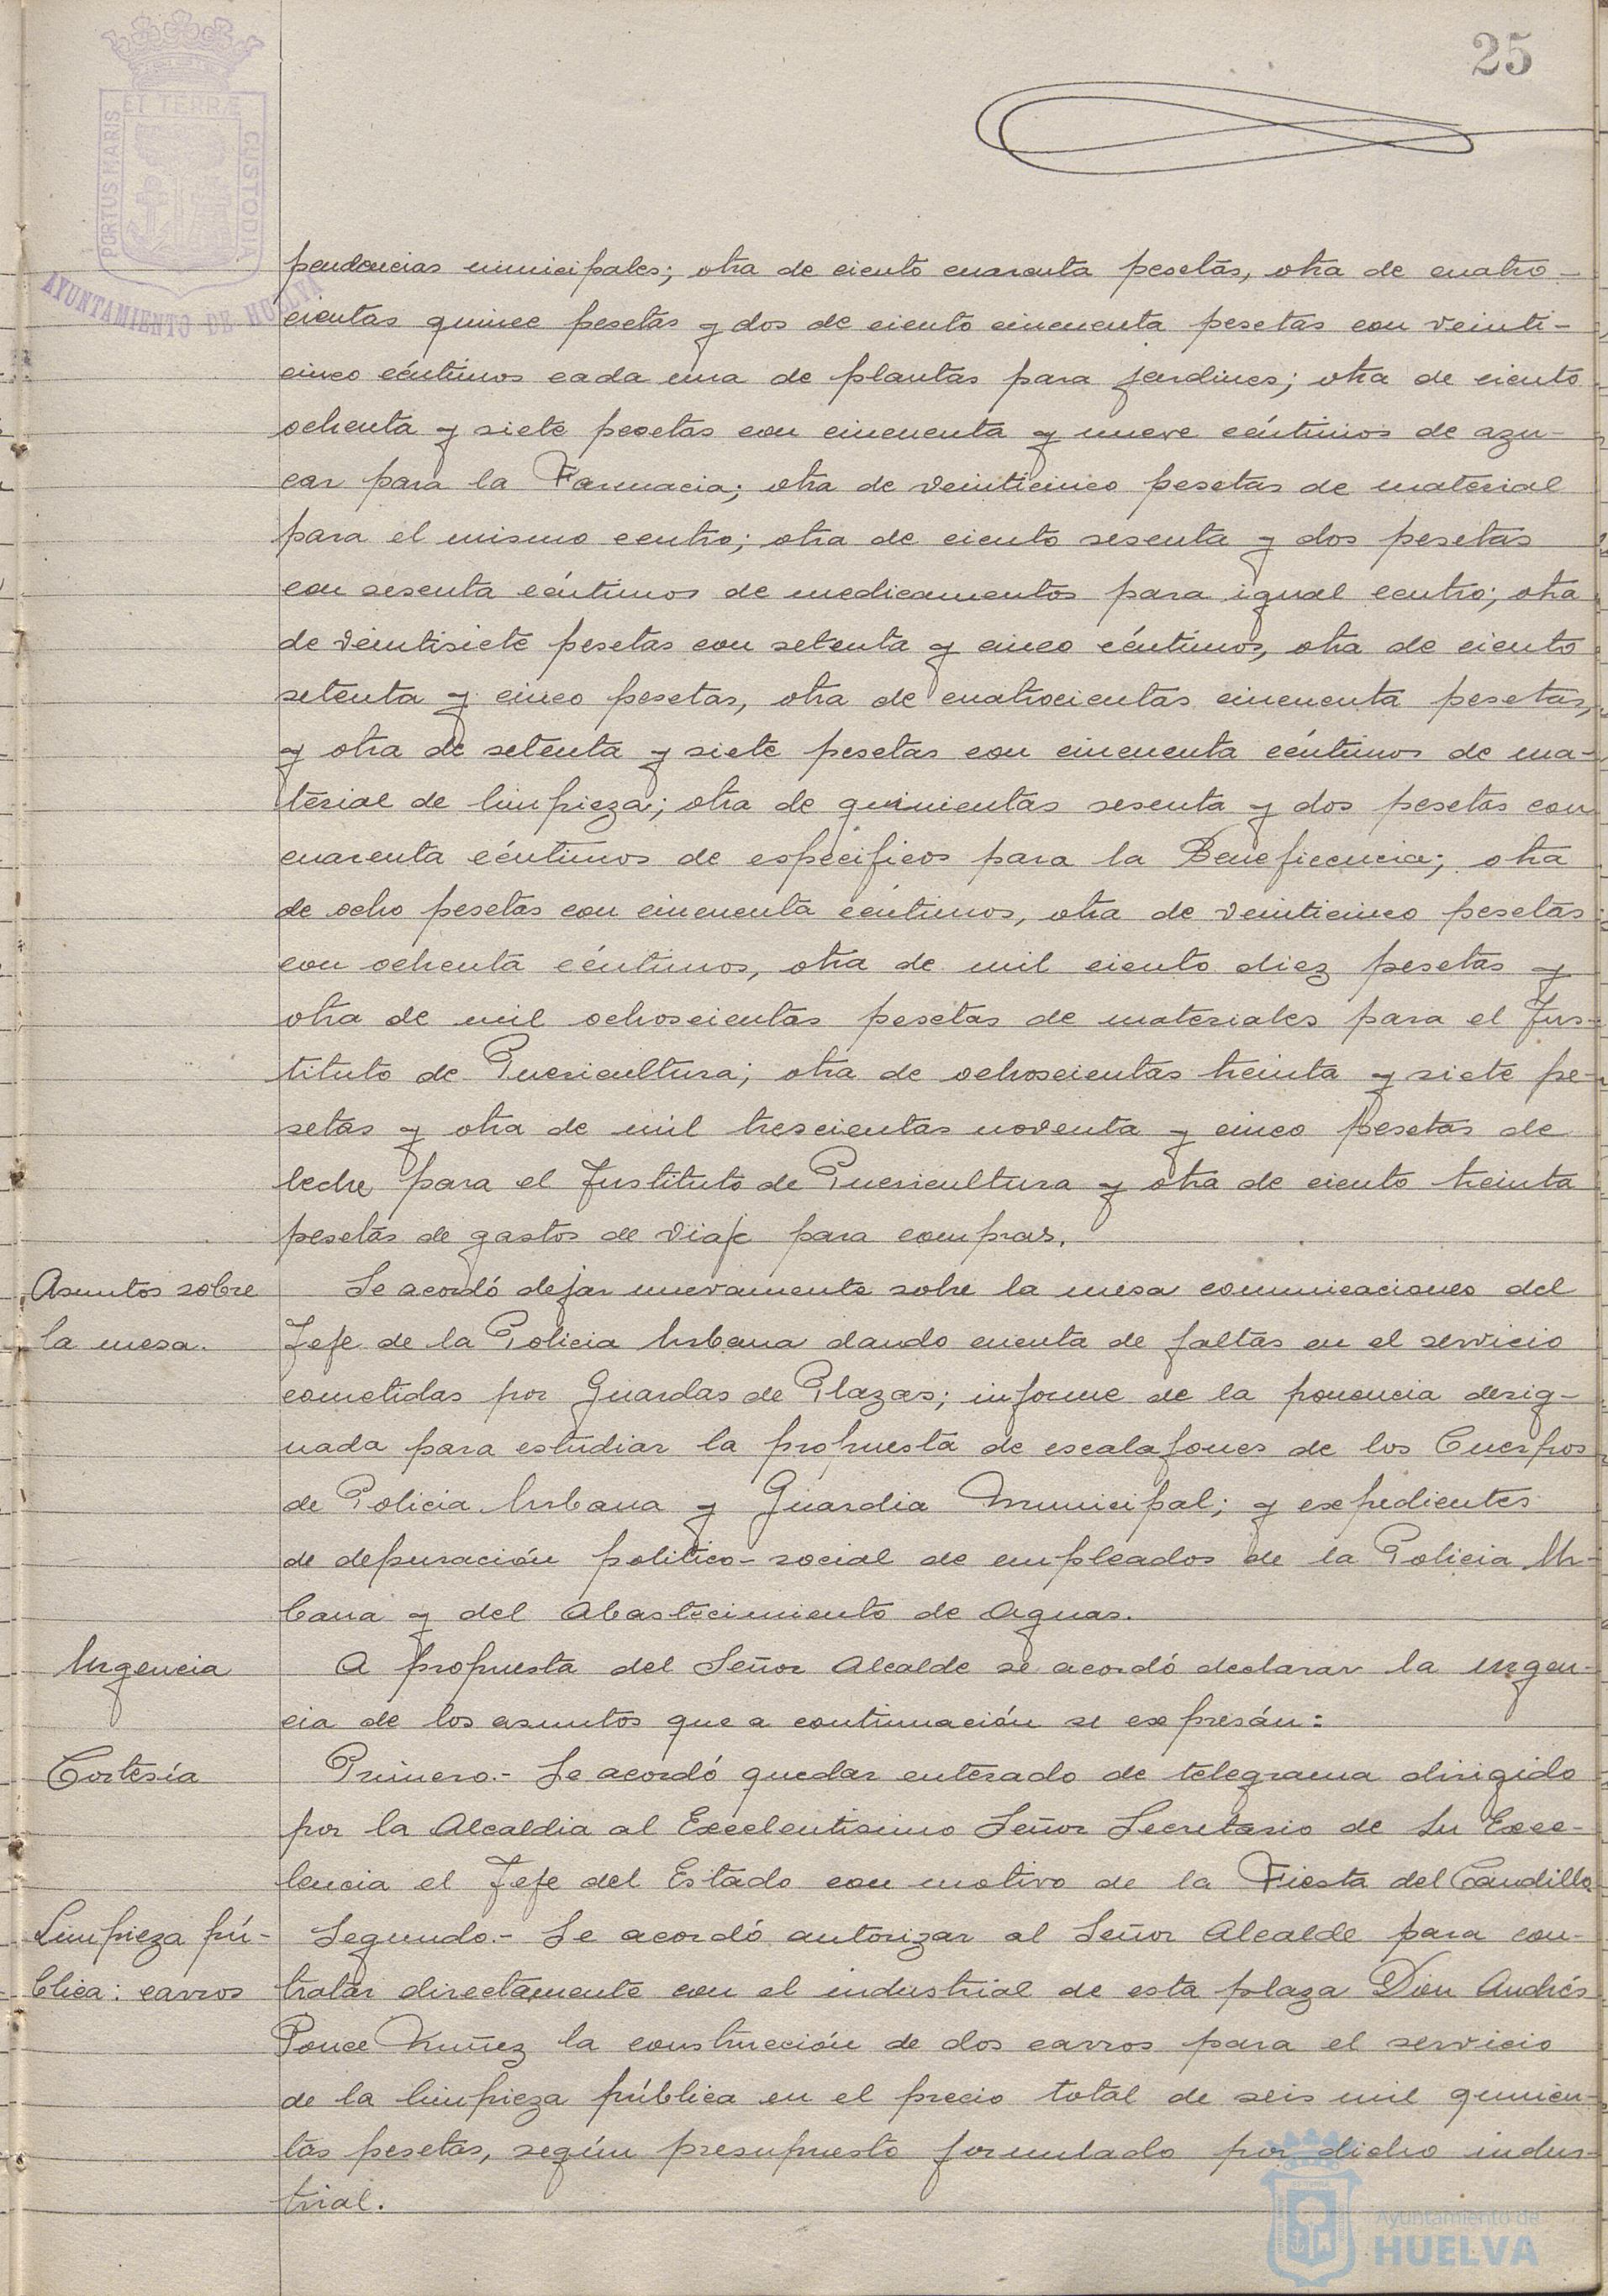 25
PORTUS MARIS ET TERRÆ CUSTODIA
AYUNTAMIENTO DE HUELVA
pendencias municipales; otra de ciento cuarenta pesetas, otra de cuatro-
cientas quince pesetas y dos de ciento cincuenta pesetas con veinti-
cinco céntimos cada una de plantas para jardines; otra de ciento
ochenta y siete pesetas con cincuenta y nueve céntimos de azu-
car para la Farmacia; otra de veinticinco pesetas de material
para el mismo centro; otra de ciento sesenta y dos pesetas
con sesenta céntimos de medicamentos para igual centro; otra
de veintisiete pesetas con setenta y cinco céntimos, otra de ciento
setenta y cinco pesetas, otra de cuatrocientas cincuenta pesetas,
y otra de setenta y siete pesetas con cincuenta céntimos de ma-
terial de limpieza; otra de quinientas sesenta y dos pesetas con
cuarenta céntimos de especificos para la Beneficencia; otra
de ocho pesetas con cincuenta céntimos, otra de veinticinco pesetas
con ochenta céntimos, otra de mil ciento diez pesetas y
otra de mil ochoscientas pesetas de materiales para el Ins-
tituto de Puericultura; otra de ochoscientas treinta y siete pe-
setas y otra de mil trescientas noventa y cinco pesetas de
leche para el Instituto de Puericultura y otra de ciento treinta
pesetas de gastos de viaje para compras.
Asuntos sobre
la mesa.
Se acordó dejar nuevamente sobre la mesa comunicaciones del
Jefe de la Policia Urbana dando cuenta de faltas en el servicio
cometidas por Guardas de Plazas; informe de la ponencia desig-
nada para estudiar la propuesta de escalafones de los Cuerpos
de Policia Urbana y Guardia Municipal; y expedientes
de depuración politico-social de empleados de la Policia Ur-
bana y del Abastecimiento de Aguas.
Urgencia
A propuesta del Señor Alcalde se acordó declarar la urgen-
cia de los asuntos que a continuación se expresán:
Cortesía
Primero.- Se acordó quedar enterado de telegrama dirigido
por la Alcaldia al Excelentisimo Señor Secretario de Su Exce-
lencia el Jefe del Estado con motivo de la Fiesta del Caudillo.
Limpieza pú-
blica: carros
Segundo.- Se acordó autorizar al Señor Alcalde para con-
tratar directamente con el industrial de esta plaza Don Andrés
Ponce Nuñez la construcción de dos carros para el servicio
de la limpieza pública en el precio total de seis mil quinien-
tas pesetas, según presupuesto formulado por dicho indus-
trial.
Ayuntamiento de
HUELVA